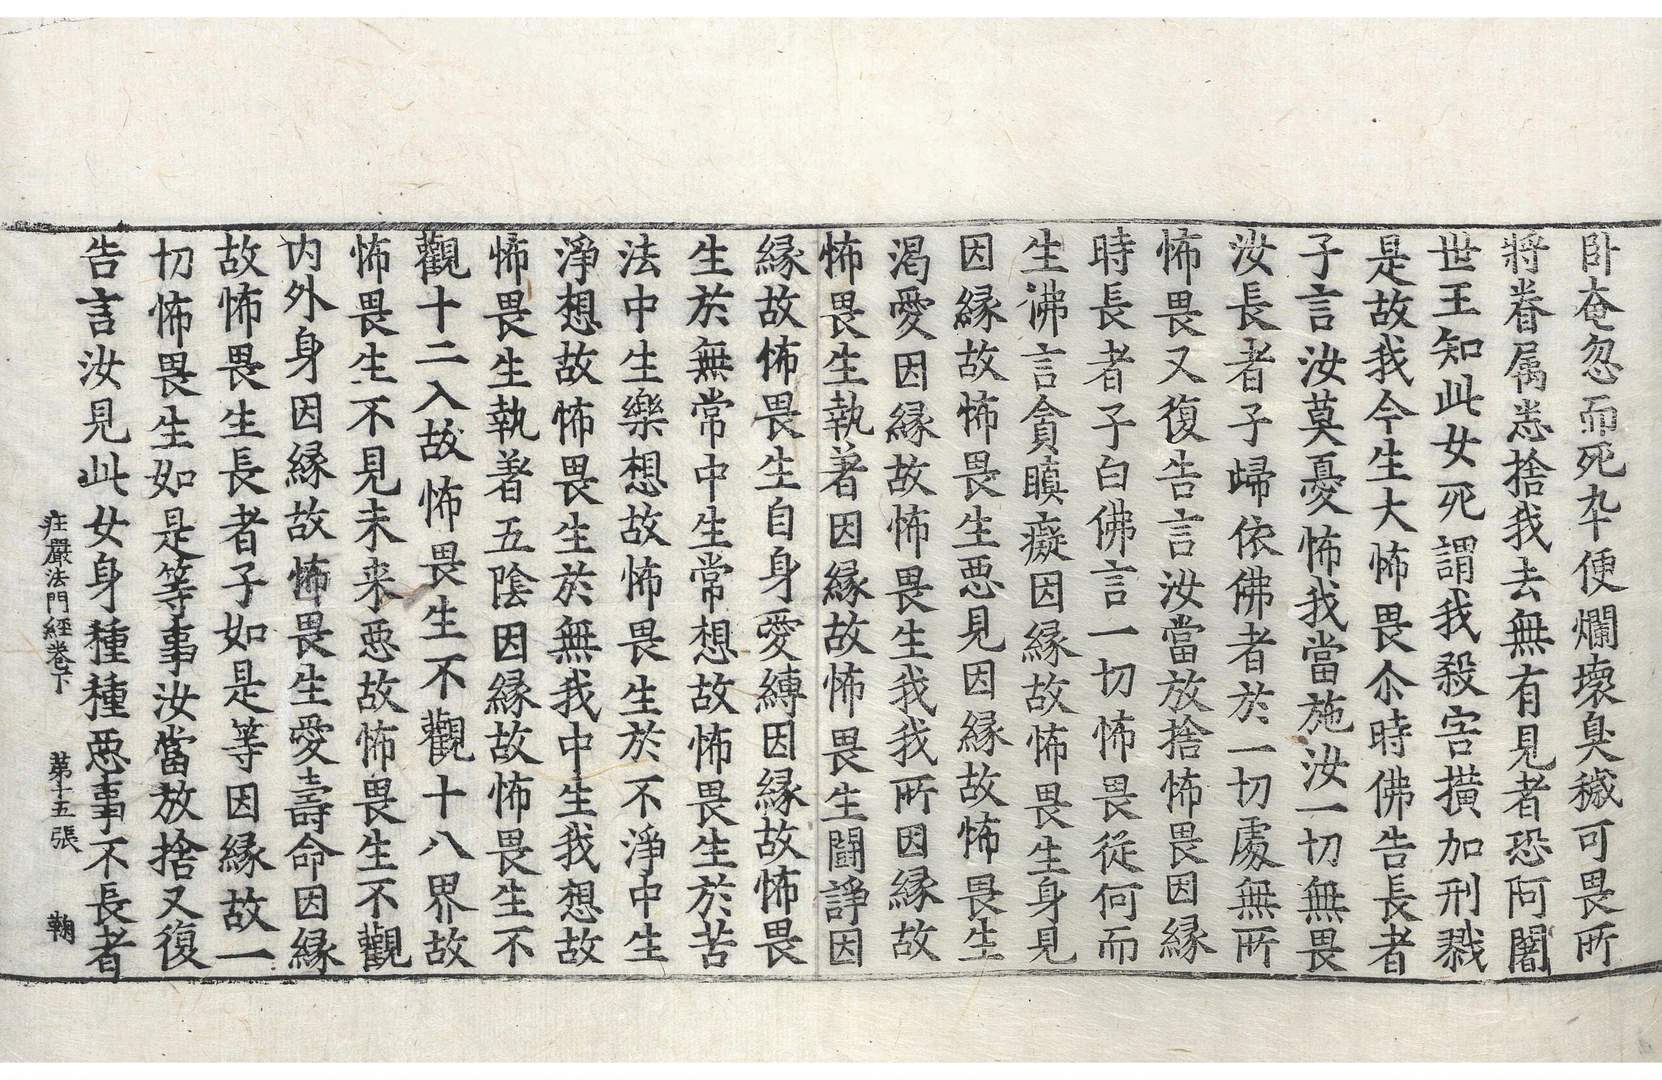 臥奄忽而死卒便爛壞臭穢可畏所
將眷属悉捨我去無有見者恐阿闍
世王知此女死謂我殺害撗加刑戮
是故我今生大怖畏尒時佛告長者
子言汝莫憂怖我當施汝一切無畏
汝長者子歸依佛者於一切處無所
怖畏又復告言汝當放捨怖畏因縁
時長者子白佛言一切怖畏從何而
生佛言貪瞋癡因縁故怖畏生身見
因縁故怖畏生惡見因縁故怖畏生
渴愛因縁故怖畏生我我所因縁故
怖畏生執著因縁故怖畏生鬪諍因
縁故怖畏生自身愛縛因縁故怖畏
生於無常中生常想故怖畏生於苦
法中生樂想故怖畏生於不淨中生
淨想故怖畏生於無我中生我想故
怖畏生執著五陰因縁故怖畏生不
觀十二入故怖畏生不觀十八界故
怖畏生不見未来惡故怖畏生不觀
内外身因縁故怖畏生愛壽命因縁
故怖畏生長者子如是等因縁故一
切怖畏生如是等事汝當放捨又復
告言汝見此女身種種惡事不長者
庄嚴法門經卷下 第十五張 鞠